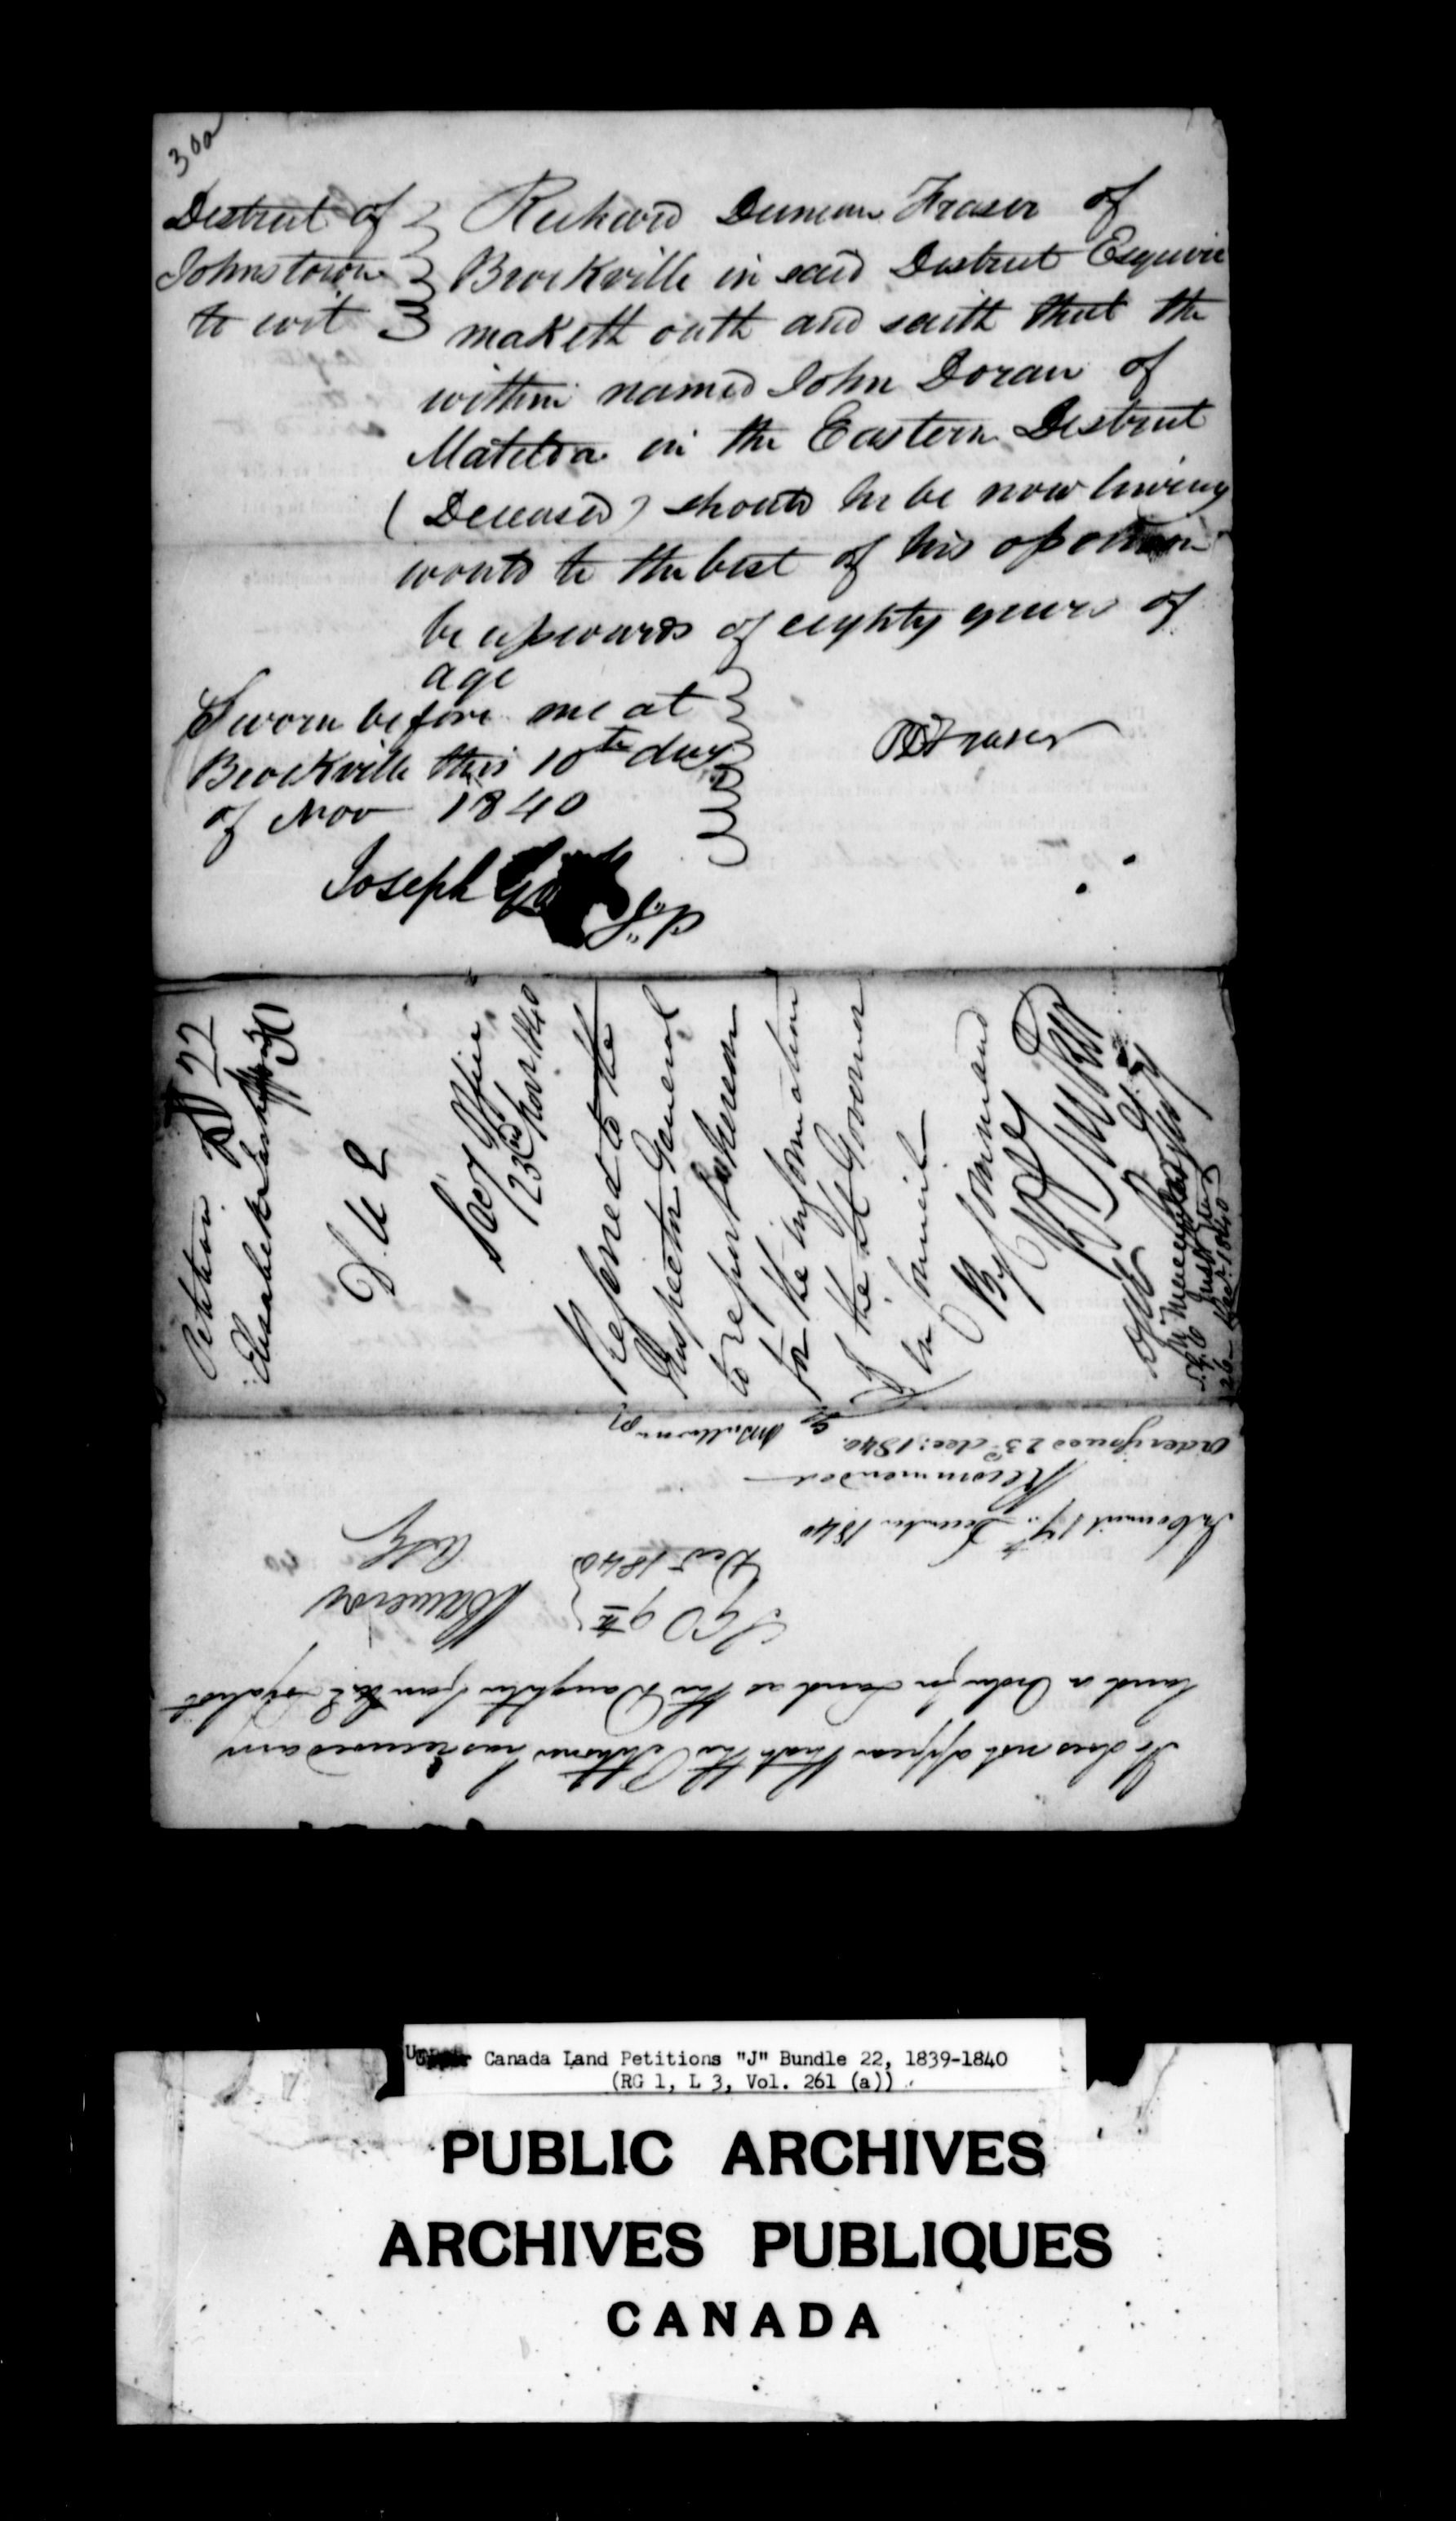 300
District of
Johnstown
to wit
Richard Duncan Fraser of
Brockville in said District Esquire
maketh oath and saith that the
within named John Doran of
Matilda in the Eastern District
(Deceased) should he be now living
would to the best of his opinion
be upwards of eighty years of
age
Sworn before me at
Brockville this 10th day
of Nov 1840
RD Fraser
Joseph J.P.
Petition
22
Elizabeth
30
D U E
Secy Office
23rd Novr 1840
Referred to the
Inspector General
to report hereon
for the information
of the Lt Governor
in Council
By Command
26 Decr 1840
It does not appear that the Petitioner has received any
Land or Order for Land as the Daughter of an U.E. Loyalist
S G O 9th
Decr 1840
In Council 17th December 1840
Recommended
Order issued 23d dec: 1840.
Upper Canada Land Petitions "J" Bundle 22, 1839-1840
(RG 1, L 3, Vol. 261 (a))
PUBLIC ARCHIVES
ARCHIVES PUBLIQUES
CANADA